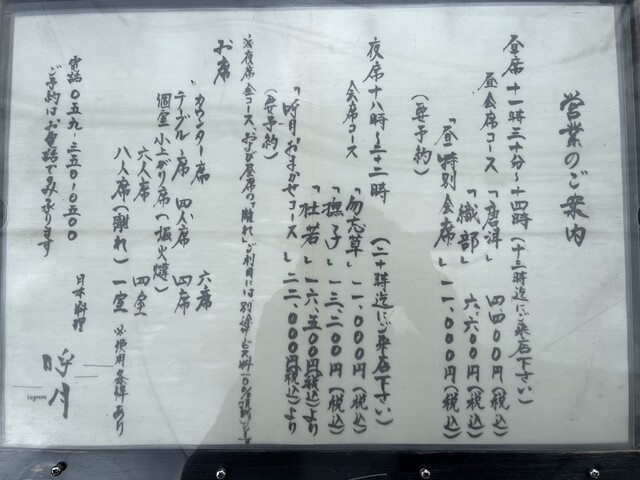 営業のご案内
昼席 十一時三十分〜十四時(十三時迄にご来店下さい)
昼会席コース 「唐津」 四、四〇〇円(税込)
「織部」 六、六〇〇円(税込)
「昼特別会席」 一一、〇〇〇円(税込)
(要予約)
夜席 十八時〜二十二時 (二十時迄にご来店下さい)
会席コース 「勿忘草」 一一、〇〇〇円(税込)
「撫子」 一三、二〇〇円(税込)
「杜若」 一六、五〇〇円(税込)より
「呼月おまかせコース」 二二、〇〇〇円(税込)より
(要予約)
※夜席全コース、および昼席の「離れ」ご利用には別途
お席
カウンター席 六席
テーブル席 四人席 四席
個室 小上がり席(掘火燵)
六人席 四室
八人席(離れ) 一室 ※使用条件あり
ご予約はお電話でうけたまわります
電話 〇五九、三五〇、〇五〇〇
日本料理
呼月